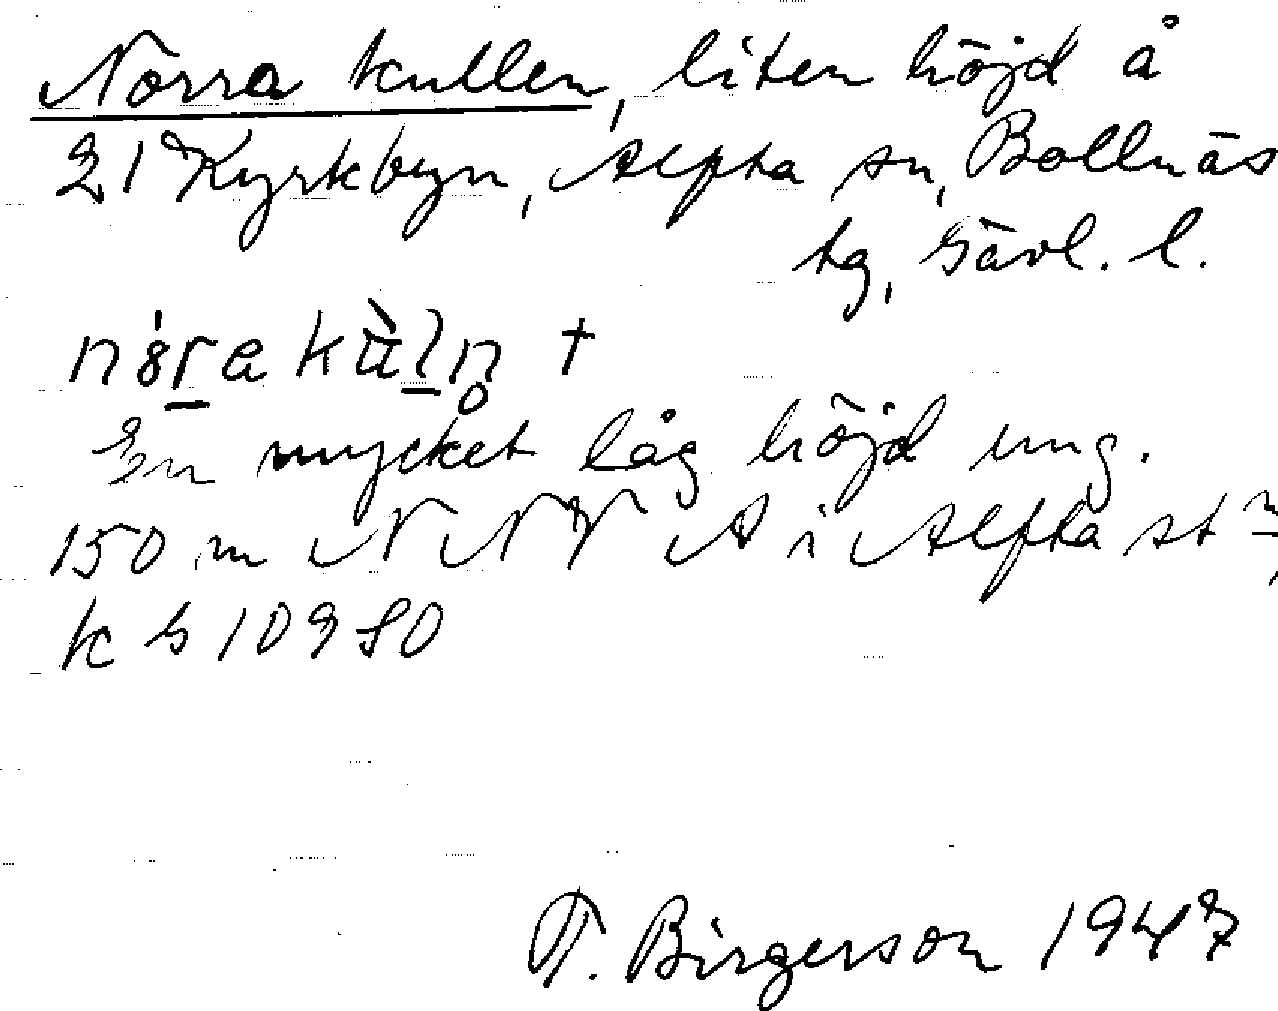 Norra kullen, liten höjd å
21 Kyrkbyn, Alfta sn, Bollnäs
tg, Gävl. l.
En mycket låg höjd ung.
150 m NNV A i Alfta st n,
k G 10980
T. Birgerson 1947